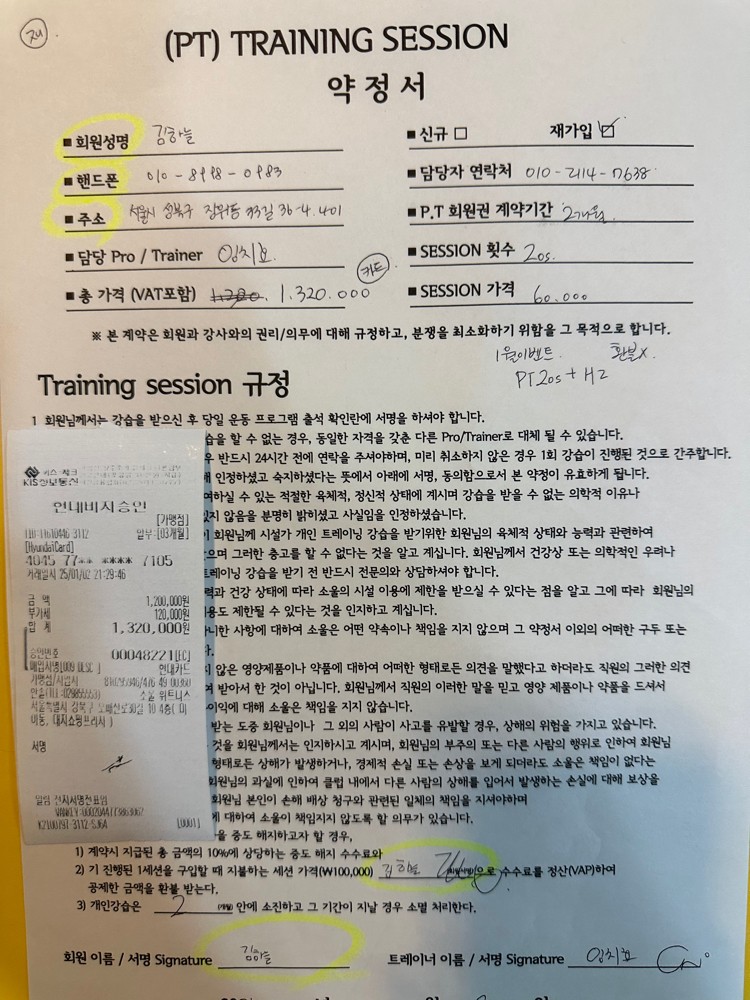 재
(PT) TRAINING SESSION
약정서
■ 회원성명 김하늘
■ 신규 □ 재가입 ☑
■ 핸드폰 010-8998-0983
■ 담당자 연락처 010-2114-7638
■ 주소 서울시 성북구 장위동
■ P.T 회원권 계약기간 2개월
■ 담당 Pro / Trainer 임치호
■ SESSION 횟수 20s.
카드
■ 총 가격 (VAT포함) 1.320.000
■ SESSION 가격 60.000
※ 본 계약은 회원과 강사와의 권리/의무에 대해 규정하고, 분쟁을 최소화하기 위함을 그 목적으로 합니다.
1월이벤트. 환불X.
PT20s + H2
Training session 규정
1 회원님께서는 강습을 받으신 후 당일 운동 프로그램 출석 확인란에 서명을 하셔야 합니다.
습을 할 수 없는 경우, 동일한 자격을 갖춘 다른 Pro/Trainer로 대체 될 수 있습니다.
반드시 24시간 전에 연락을 주셔야하며, 미리 취소하지 않은 경우 1회 강습이 진행된 것으로 간주합니다.
인정하셨고 숙지하셨다는 뜻에서 아래에 서명, 동의함으로서 본 약정이 유효하게 됩니다.
여하실 수 있는 적절한 육체적, 정신적 상태에 계시며 강습을 받을 수 없는 의학적 이유나
있지 않음을 분명히 밝히셨고 사실임을 인정하셨습니다.
회원님께 시설가 개인 트레이닝 강습을 받기위한 회원님의 육체적 상태와 능력과 관련하여
으며 그러한 충고를 할 수 없다는 것을 알고 계십니다. 회원님께서 건강상 또는 의학적인 우려나
트레이닝 강습을 받기 전 반드시 전문의와 상담하셔야 합니다.
력과 건강 상태에 따라 소울의 시설 이용에 제한을 받으실 수 있다는 점을 알고 그에 따라 회원님의
용도 제한될 수 있다는 것을 인지하고 계십니다.
니한 사항에 대하여 소울은 어떤 약속이나 책임을 지지 않으며 그 약정서 이외의 어떠한 구두 또는
다.
지 않은 영양제품이나 약품에 대하여 어떠한 형태로든 의견을 말했다고 하더라도 직원의 그러한 의견
여 받아서 한 것이 아닙니다. 회원님께서 직원의 이러한 말을 믿고 영양 제품이나 약품을 드셔서
이익에 대해 소울은 책임을 지지 않습니다.
받는 도중 회원님이나 그 외의 사람이 사고를 유발할 경우, 상해의 위험을 가지고 있습니다.
것을 회원님께서는 인지하시고 계시며, 회원님의 부주의 또는 다른 사람의 행위로 인하여 회원님
형태로든 상해가 발생하거나, 경제적 손실 또는 손상을 보게 되더라도 소울은 책임이 없다는
회원님의 과실에 인하여 클럽 내에서 다른 사람의 상해를 입어서 발생하는 손실에 대해 보상을
회원님 본인이 손해 배상 청구와 관련된 일체의 책임을 지셔야하며
게 대하여 소울이 책임지지 않도록 할 의무가 있습니다.
을 중도 해지하고자 할 경우,
1) 계약시 지급된 총 금액의 10%에 상당하는 중도 해지 수수료와
2) 기 진행된 1세션을 구입할 때 지불하는 세션 가격(₩100,000) 김하늘 으로 수수료를 정산(VAP)하여
공제한 금액을 환불 받는다.
3) 개인강습은 2 (개월) 안에 소진하고 그 기간이 지날 경우 소멸 처리한다.
회원 이름 / 서명 Signature 김하늘
트레이너 이름 / 서명 Signature 임치호
KIS정보통신
현대비자승인
[가맹점]
할부:[03개월]
[HyundaiCard]
4045 77** **** 7105
거래일시 25/01/02 21:29:46
금 액 1,200,000원
부가세 120,000원
합 계 1,320,000원
승인번호 00048221[EC]
현대카드
소울 휘트니스
서명
[0001]